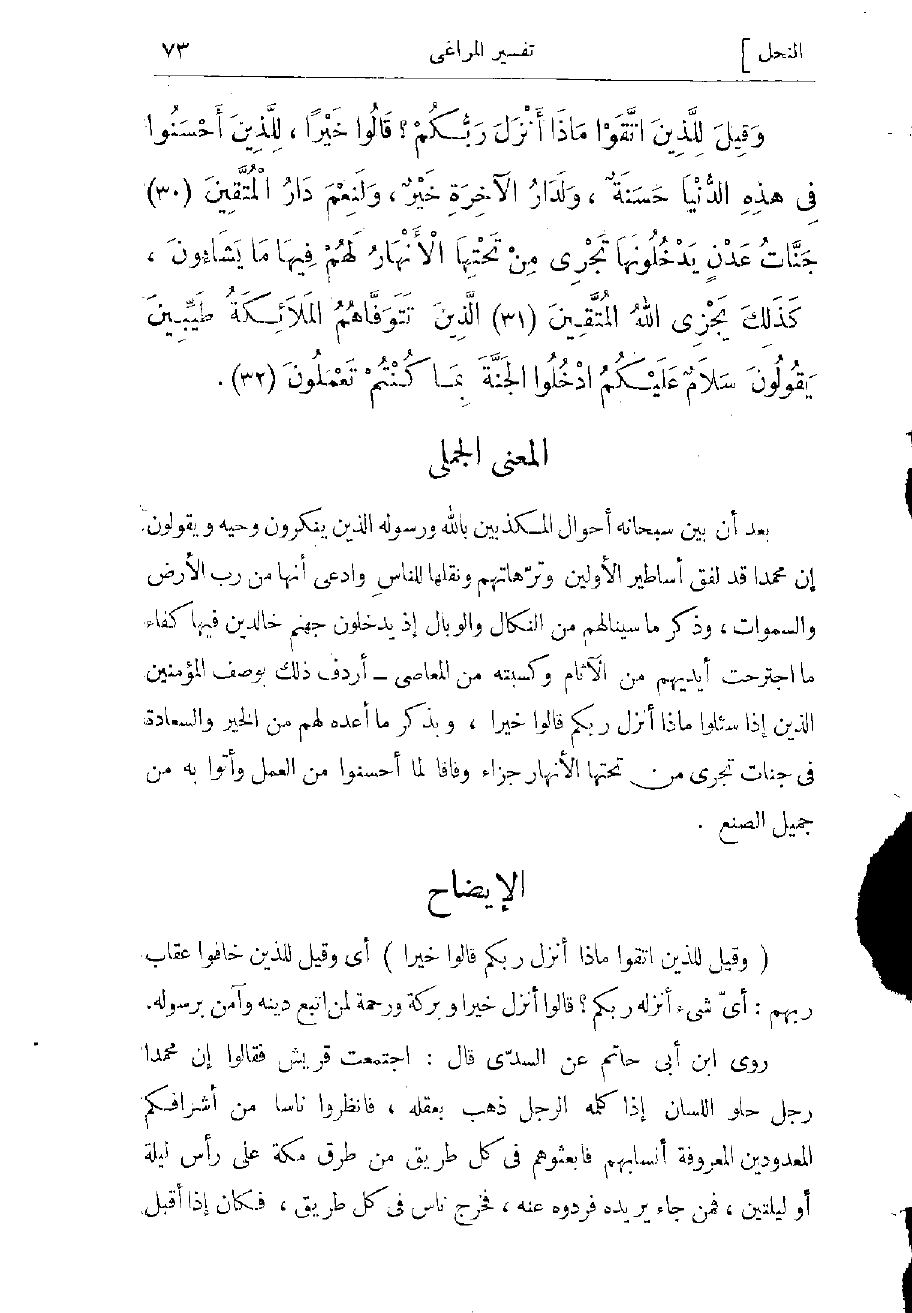 النحل ] تفسير المراغى ٧٣
وَقِيلَ لِلَّذِينَ اتَّقَوْا مَاذَا أَنْزَلَ رَبُّكُمْ؟ قَالُوا خَيْرًا ، لِلَّذِينَ أَحْسَنُوا
فِى هذِهِ الدُّنْيَا حَسَنَةٌ ، وَلَدَارُ الآخِرَةِ خَيْرٌ ، وَلَنِعْمَ دَارُ الْمُتَّقِينَ (٣٠)
جَنَّاتُ عَدْنٍ يَدْخُلُونَهَا تَجْرِى مِنْ تَحْتِهَا الْأَنْهَارُ لَهُمْ فِيهَا مَا يَشَاءُونَ ،
كَذَلِكَ يَجْزِى اللهُ الْمُتَّقِينَ (٣١) الَّذِينَ تَتَوَفَّاهُمُ المَلَائِكَةُ طَيِّبِينَ
يَقُولُونَ سَلَامٌ عَلَيْكُمُ ادْخُلُوا الْجَنَّةَ بِمَا كُنْتُمْ تَعْمَلُونَ (٣٢) .
المعنى الجملى
بعد أن بين سبحانه أحوال المكذبين بالله ورسوله الذين ينكرون وحيه ويقولون
إن محمدا قد لفق أساطير الأولين وترّهاتهم ونقلها للناس وادعى أنها من رب الأرض
والسموات ، وذكر ما سينالهم من النكال والوبال إذ يدخلون جهنم خالدين فيها كفاء
ما اجترحت أيديهم من الآثام وكسبته من المعاصى – أردف ذلك بوصف المؤمنين
الذين إذا سئلوا ماذا أنزل ربكم قالوا خيرا ، وبذكر ما أعده لهم من الخير والسعادة
فى جنات تجرى من تحتها الأنهار جزاء وفاقا لما أحسنوا من العمل وأتوا به من
جميل الصنع .
الإيضاح
( وقيل للذين اتقوا ماذا أنزل ربكم قالوا خيرا ) أى وقيل للذين خافوا عقاب
ربهم : أىّ شىء أنزله ربكم ؟ قالوا أنزل خيرا وبركة ورحمة لمن اتبع دينه وآمن برسوله.
روى ابن أبى حاتم عن السدّى قال : اجتمعت قريش فقالوا إن محمدا
رجل حلو اللسان إذا كلمه الرجل ذهب بعقله ، فانظروا ناسا من أشرافكم
المعدودين المعروفة أنسابهم فابعثوهم فى كل طريق من طرق مكة على رأس ليلة
أو ليلتين ، فمن جاء يريده فردوه عنه ، فخرج ناس فى كل طريق ، فكان إذا أقبل